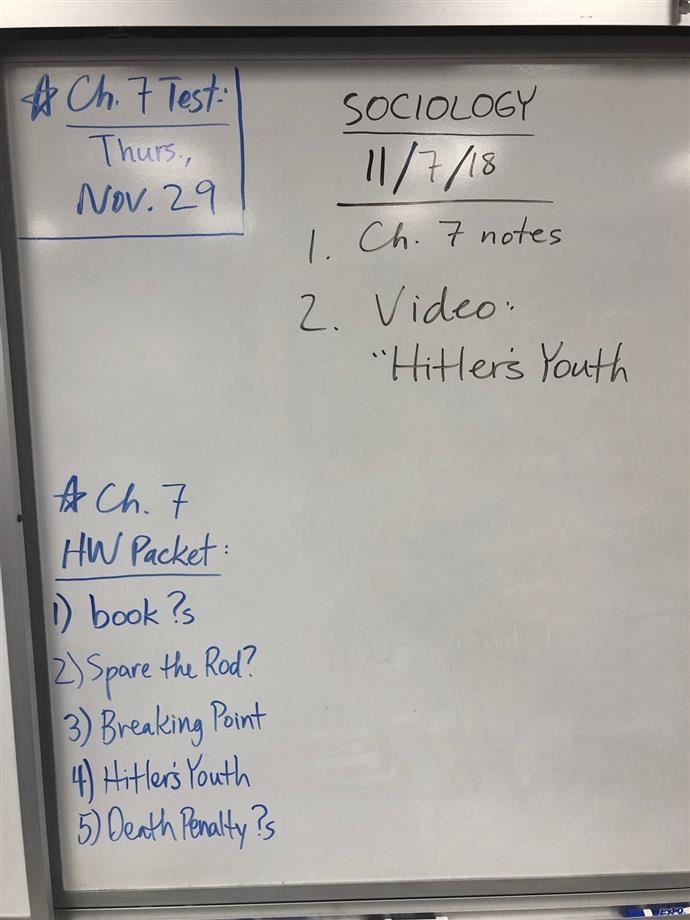 ☆ Ch. 7 Test:
Thurs.,
Nov. 29
SOCIOLOGY
11/7/18
1. Ch. 7 notes
2. Video:
"Hitler's Youth
☆ Ch. 7
HW Packet:
1) book ?s
2) Spare the Rod?
3) Breaking Point
4) Hitler's Youth
5) Death Penalty ?s
EXPO